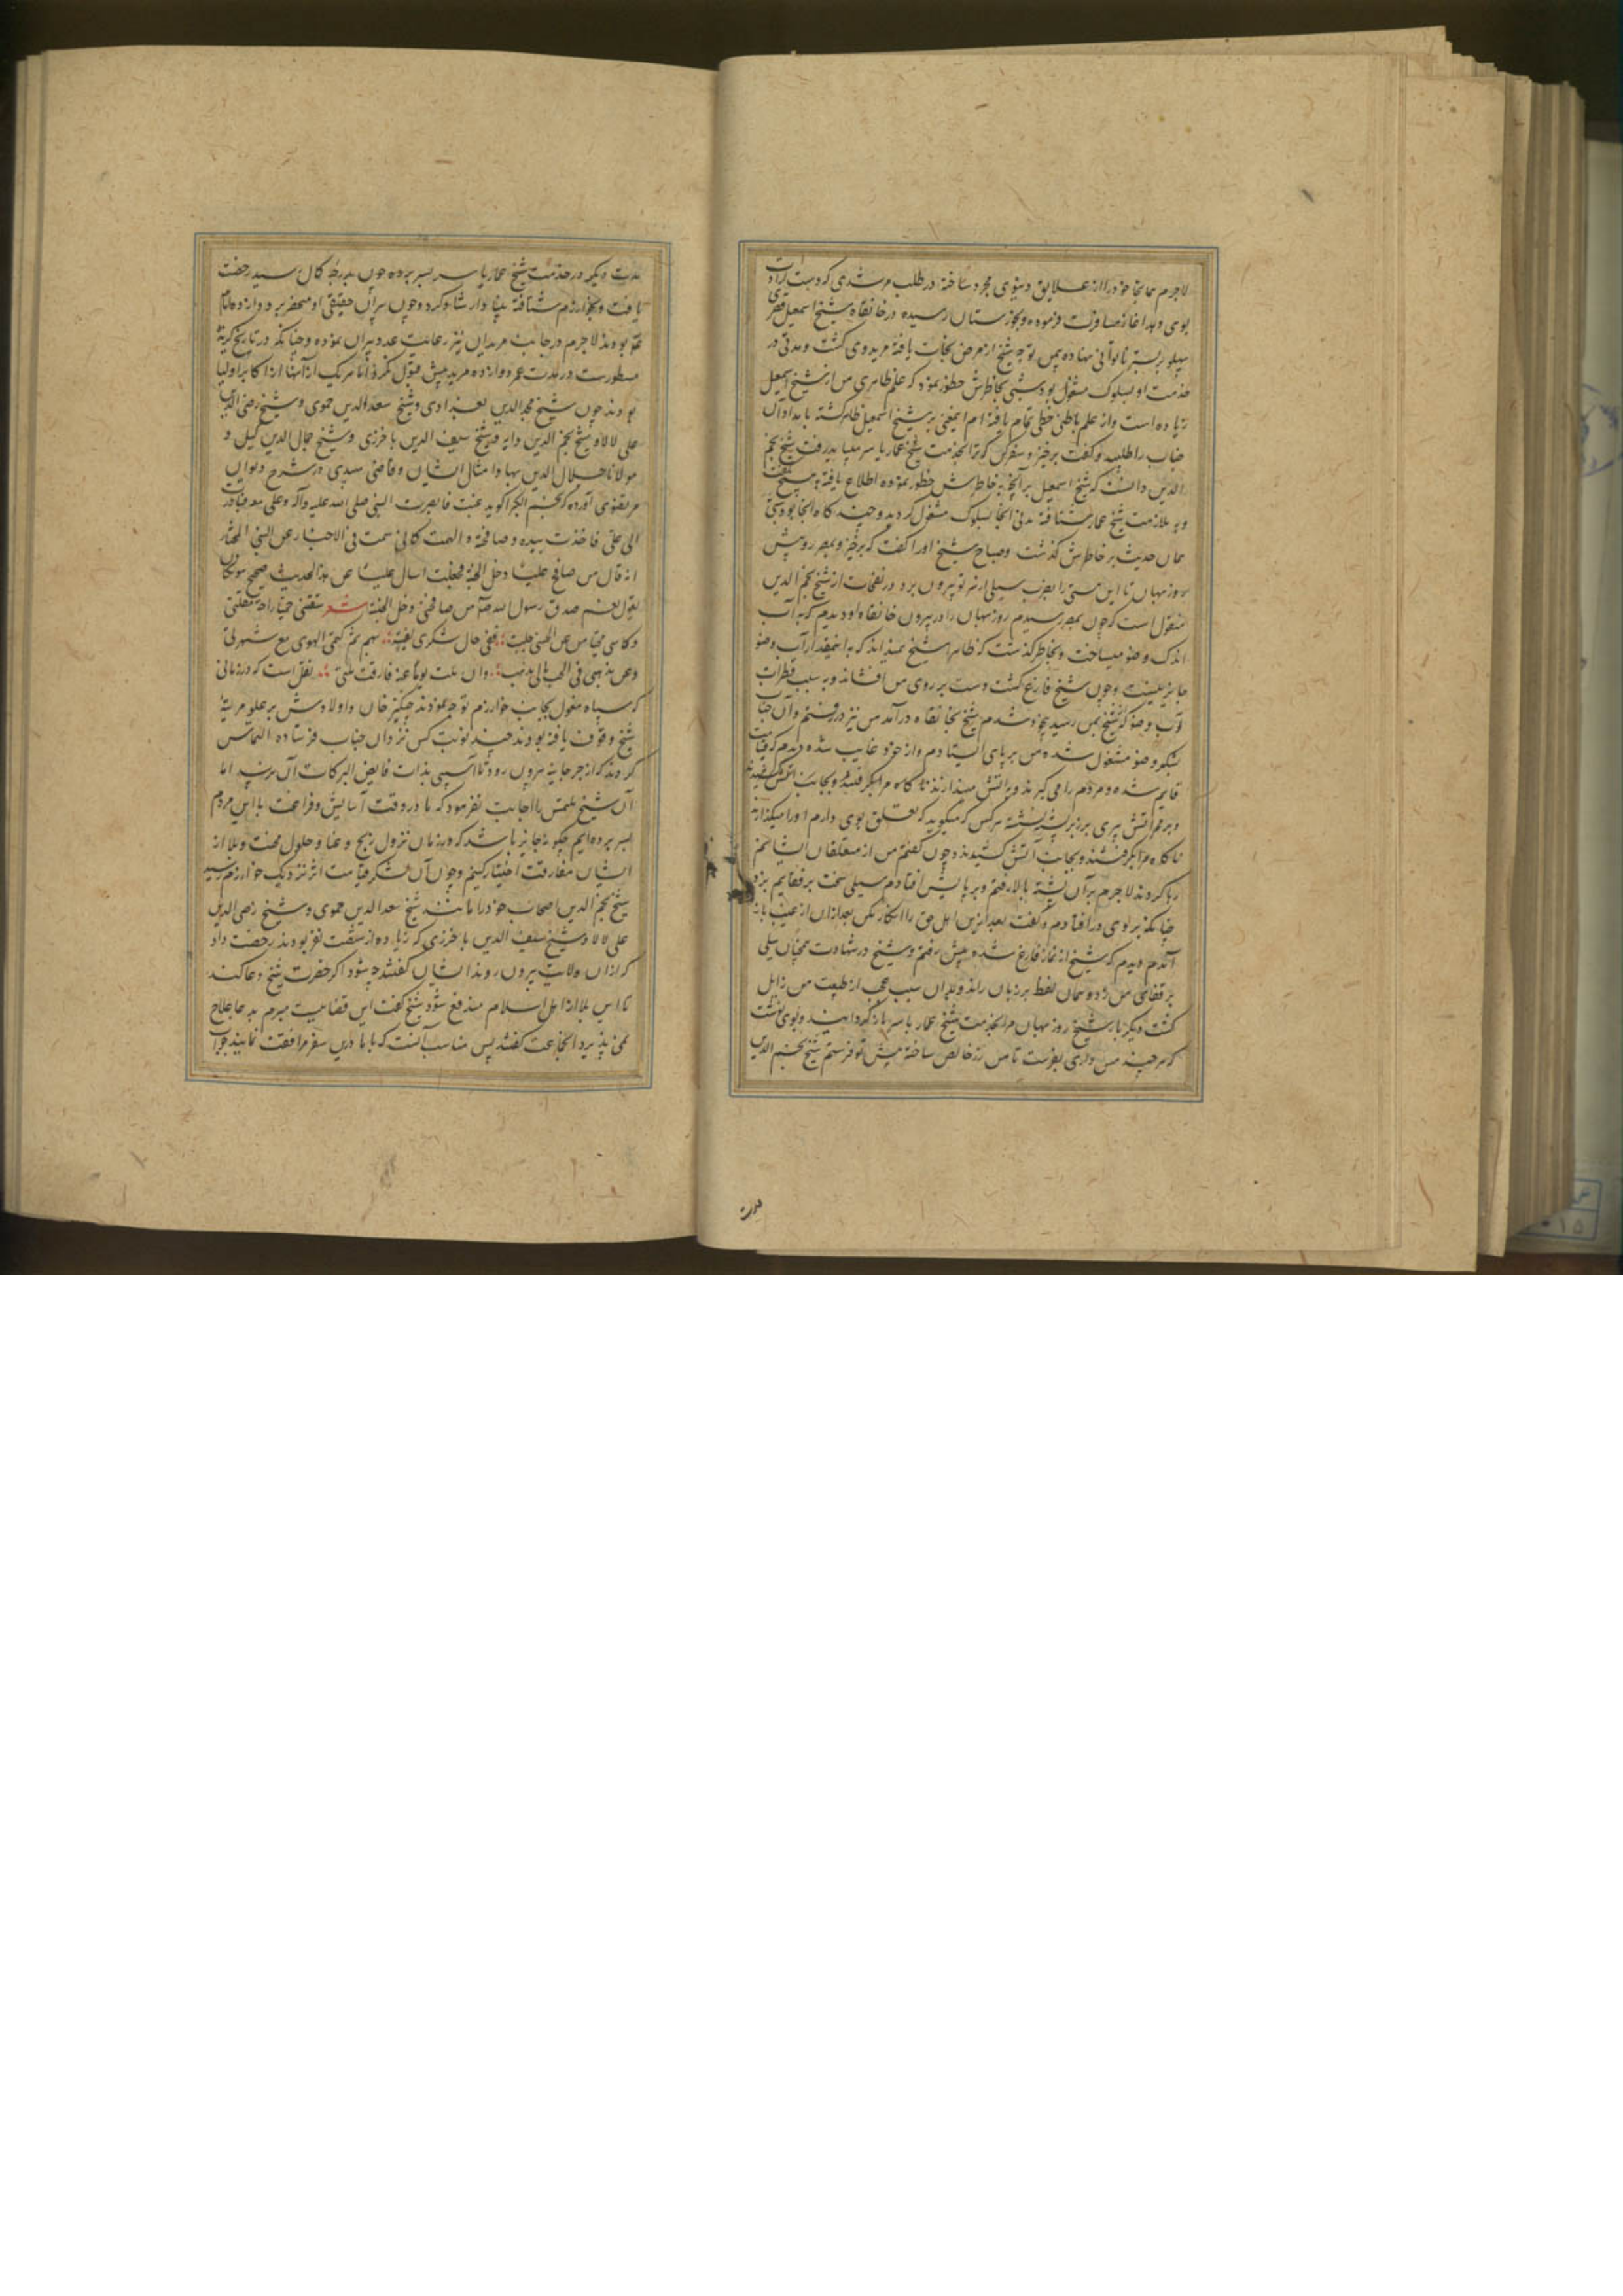 لاجرم همانجا خود را از علایق دنیوی مجرد ساخته در طلب مرشدی که دست ارادت
بوی دهد اغاز مسافرت فرموده و بخوزستان رسیده در خانقاه شیخ اسمعیل قصری
پهلو بر بستر ناتوانی نهاده پس بتوجه شیخ از مرض نجات یافته مرید وی کشت و مدتی در
خدمت او بسلوک مشغول بود شبی بخاطرش خطور نمود که علم ظاهری من از شیخ اسمعیل
زیاده است و از علم باطنی حظی تمام یافته ام اینمعنی بر شیخ اسمعیل ظاهر کشته بامداد آن
جناب را طلبید و کفت برخیز و سفر کن که ترا بخدمت شیخ عمار یاسر میباید رفت شیخ نجم
الدین دانست که شیخ اسمعیل بر آنچه بخاطرش خطور نموده اطلاع یافته و هیچ نکفت
و به ملازمت شیخ عمار شتافته مدتی آنجا بسلوک مشغول کردید و چند کاه آنجا بود شبی
همان حدیث بر خاطرش کذشت و صباح شیخ او را کفت که برخیز و بمصر رو پیش
روزبهان تا این هستی را بضرب سیلی از سر تو بیرون برد در نفحات از شیخ نجم الدین
منقول است که چون بمصر رسیدم روزبهان را در بیرون خانقاه او دیدم که به آب
اندک وضو میساخت و بخاطر کذشت که ظاهرا شیخ نمیداند که به اینمقدار آب وضو
جایز نیست و چون شیخ فارغ کشت دست بر روی من افشاند و به سبب قطرات
آب وضو که از شیخ بمن رسید بیخود شدم شیخ بخانقاه درآمد من نیز دررفتم و آن جناب
بشکر وضو مشغول شده من بر پای ایستادم و از خود غایب شده دیدم که قیامت
قایم شده و مردم را می کیرند و به اتش میندازند ناکاه مرا بکرفتند و بجانب اتش کشیدند
و بر ممر آتش پیری بر زبر پشته نشسته هرکس که میکوید که تعلق بوی دارم او را میکذارند
ناکاه مرا بکرفتند و بجانب آتش کشیدند و چون کفتم من از متعلقان ایشانم
رها کردند لاجرم بر آن پشته بالا رفتم و بر پایش افتادم سیلی سخت بر قفایم بزد
چنانکه بر روی درافتادم و کفت بعد ازین اهل حق را انکار مکن بعد ازان از غیب باز
آمدم دیدم که شیخ از نماز فارغ شده پیش رفتم و شیخ در شهادت همچنان سیلی
بر قفای من زد و همان لفظ بر زبان راند و بدان سبب عجب از طبیعت من زایل
کشت دیکر بار شیخ روزبهان مرا بخدمت شیخ عمار یاسر بازکردانید و بوی نوشت
که هرچند مس داری بفرست تا من زر خالص ساخته پیش تو فرستم شیخ نجم الدین
مدت
مدت دیکر در خدمت شیخ عمار یاسر بسر برده چون بدرجه کمال رسید رخصت
یافت و بخوارزم شتافته بنیاد ارشاد کرد و چون پیران حقیقی او منحصر بر دوازده امام
بودند لاجرم در جانب مریدان نیز رعایت عدد پیران نموده و چنانکه در تاریخ کزیده
مسطورست در مدت عمر دوازده مرید بیش قبول نکرد اما هریک از آنها از اکابر اولیا
بودند چون شیخ مجدالدین بغدادی و شیخ سعدالدین حموی و شیخ رضی الدین
علی لالا و شیخ نجم الدین دایه و شیخ سیف الدین باخرزی و شیخ جمال الدین کیل و
مولانا جلال الدین بها و امثال ایشان و قاضی میبدی در شرح دیوان
مرتضوی آورده که نجم الکبرا کوید غبت فابصرت النبی صلی الله علیه وآله وعلی معه فبادرت
الی علی فاخذت بیده وصافحته والهمت کانی سمعت فی الاخبار عن النبی المختار
انه قال من صافح علیا دخل الجنة فجعلت اسال علیا عن هذا الحدیث صحیح هو فکان
یقول نعم صدق رسول الله صدق من صافحنی دخل الجنة شعر
وکاسی محیا من عن الحسن جلت
وعن مذهبی فی الحب مالی مذهب وان ملت یوما عنه فارقت ملتی نقل است که در زمانی
که سپاه مغول بجانب خوارزم توجه نمودند چنکیز خان و اولادش بر علو مرتبهٔ
شیخ وقوف یافته بودند چند نوبت کس نزد آن جناب فرستاده التماس
کردند که از جرجانیه بیرون رود تا آسیبی بذات فایض البرکات آن نرسد اما
آن شیخ ملتمس را اجابت نفرمود که ما در وقت آسایش و فراغت با این مردم
بسر برده ایم چکونه جایز باشد که در زمان نزول رنج و عنا و حلول محنت و بلا از
ایشان مفارقت اختیار کنیم و چون آن لشکر قیامت اثر نزدیک خوارزم رسید
شیخ نجم الدین اصحاب خود را مانند شیخ سعدالدین حموی و شیخ رضی الدین
علی لالا و شیخ سیف الدین باخرزی که زیاده از شصت نفر بودند رخصت داد
که ازان ولایت بیرون روند ایشان کفتند چه شود اکر حضرت شیخ دعا کند
تا این بلا از اهل اسلام مندفع شود شیخ کفت این قضاییست مبرم بدعا علاج
نمی پذیرد انجماعت کفتند پس مناسب آنست که با ما درین سفر موافقت نمایند جواب